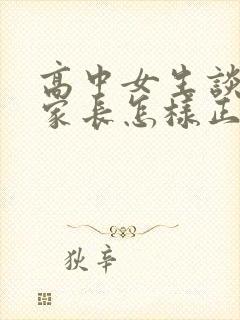 高中女生談
家長怎樣正
狄辛